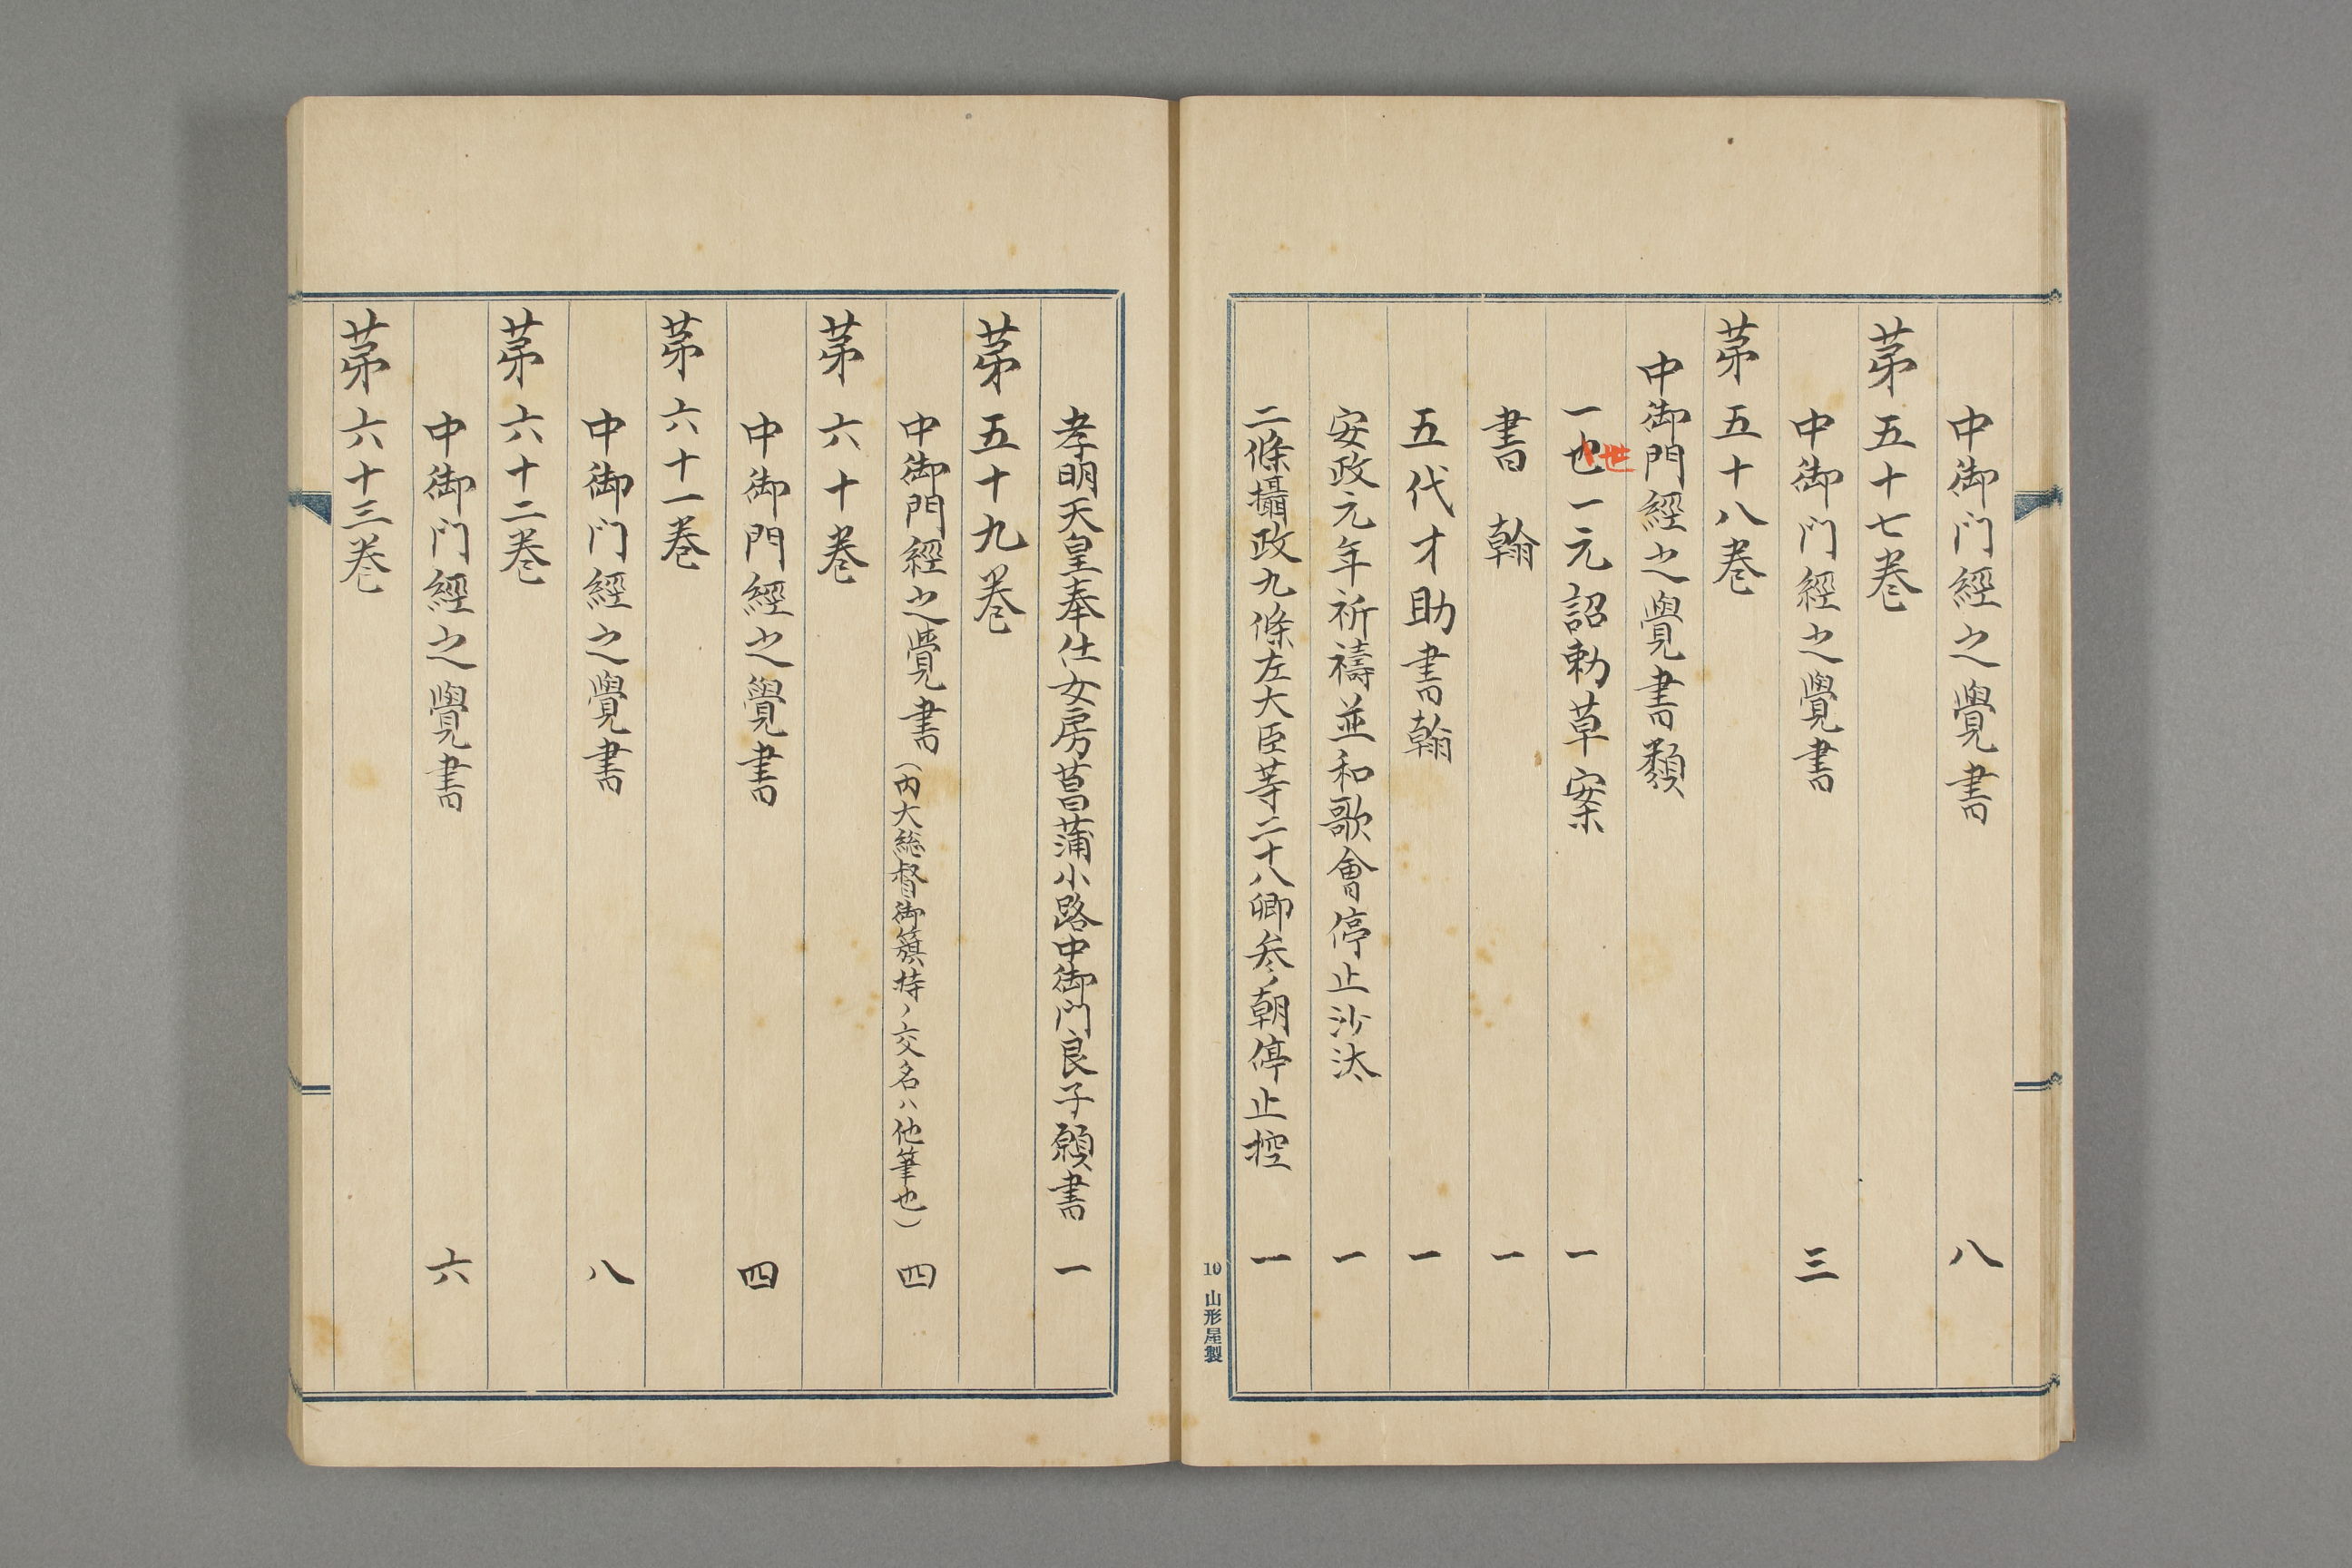 中御门經之覺書 八
第五十七巻
中御门經之覺書 三
第五十八巻
中御門經之覺書類
一也一元詔勅草案 一
世
書翰 一
五代才助書翰 一
安政元年祈禱並和歌會停止沙汰 一
二條攝政九條左大臣等二十八卿参朝停止控 一
10 山形屋製
孝明天皇奉仕女房菖蒲小路中御门良子願書 一
第五十九巻
中御門經之覺書(内大総督御籏持ノ交名ハ他筆也) 四
第六十巻
中御門經之覺書 四
第六十一巻
中御门經之覺書 八
第六十二巻
中御门經之覺書 六
第六十三巻